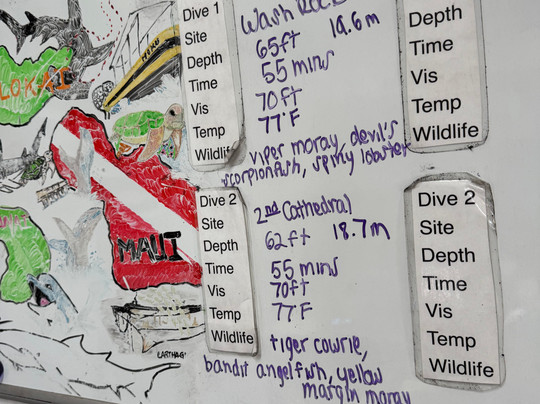 LOKAI
MAUI
EARTHAGI
Dive 1
Site
Depth
Time
Vis
Temp
Wildlife
Wash Rock
65ft 19.6m
55 mins
70ft
77°F
viper moray, devil's
scorpionfish, spiny lobster
Depth
Time
Vis
Temp
Wildlife
Dive 2
Site
Depth
Time
Vis
Temp
Wildlife
2nd Cathedral
62ft 18.7m
55 mins
70ft
77°F
tiger cowrie,
bandit angelfish, yellow
margin moray
Dive 2
Site
Depth
Time
Vis
Temp
Wildlife